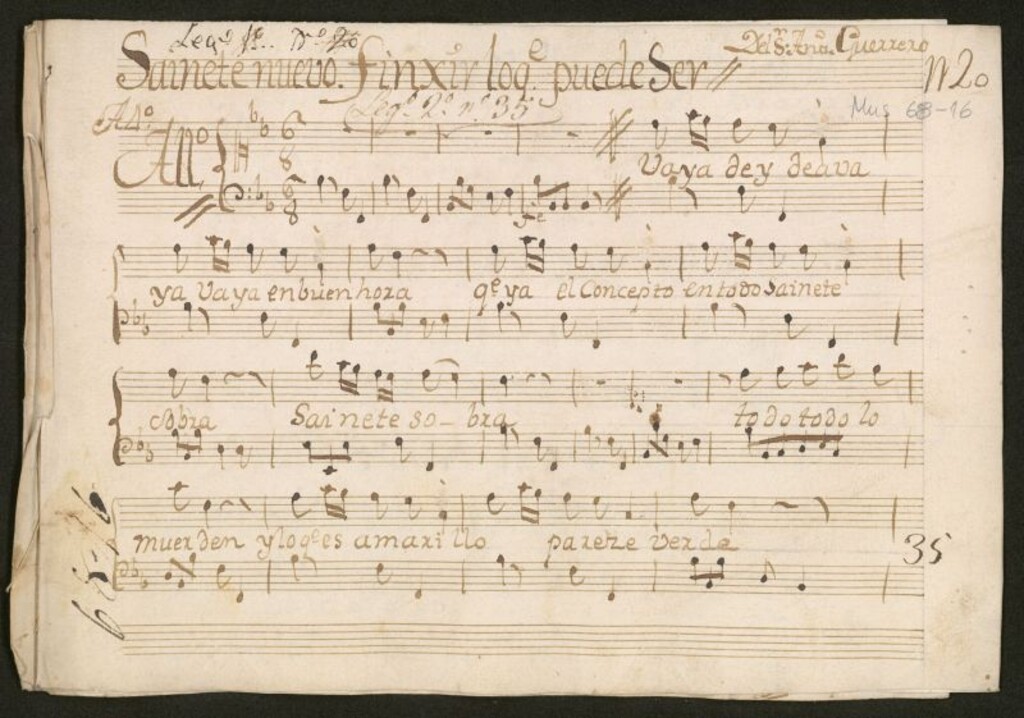 Leg.º 1.. N.º 20
Sainete nuevo. finxir log.e puede Ser // N 2o
Del S.r Ant.o Guerrero
Leg.º 2.º n.º 35
Mus 68-16
A 4.º
All.º
6 8
Vaya de y deava
6 8
fe
ya Vaya enbuen hora q.e ya el Concepto entodo sainete
sobra Sainete so- bra todo todo lo
muerden y loq.e es amari llo pareze verde
35
68-16